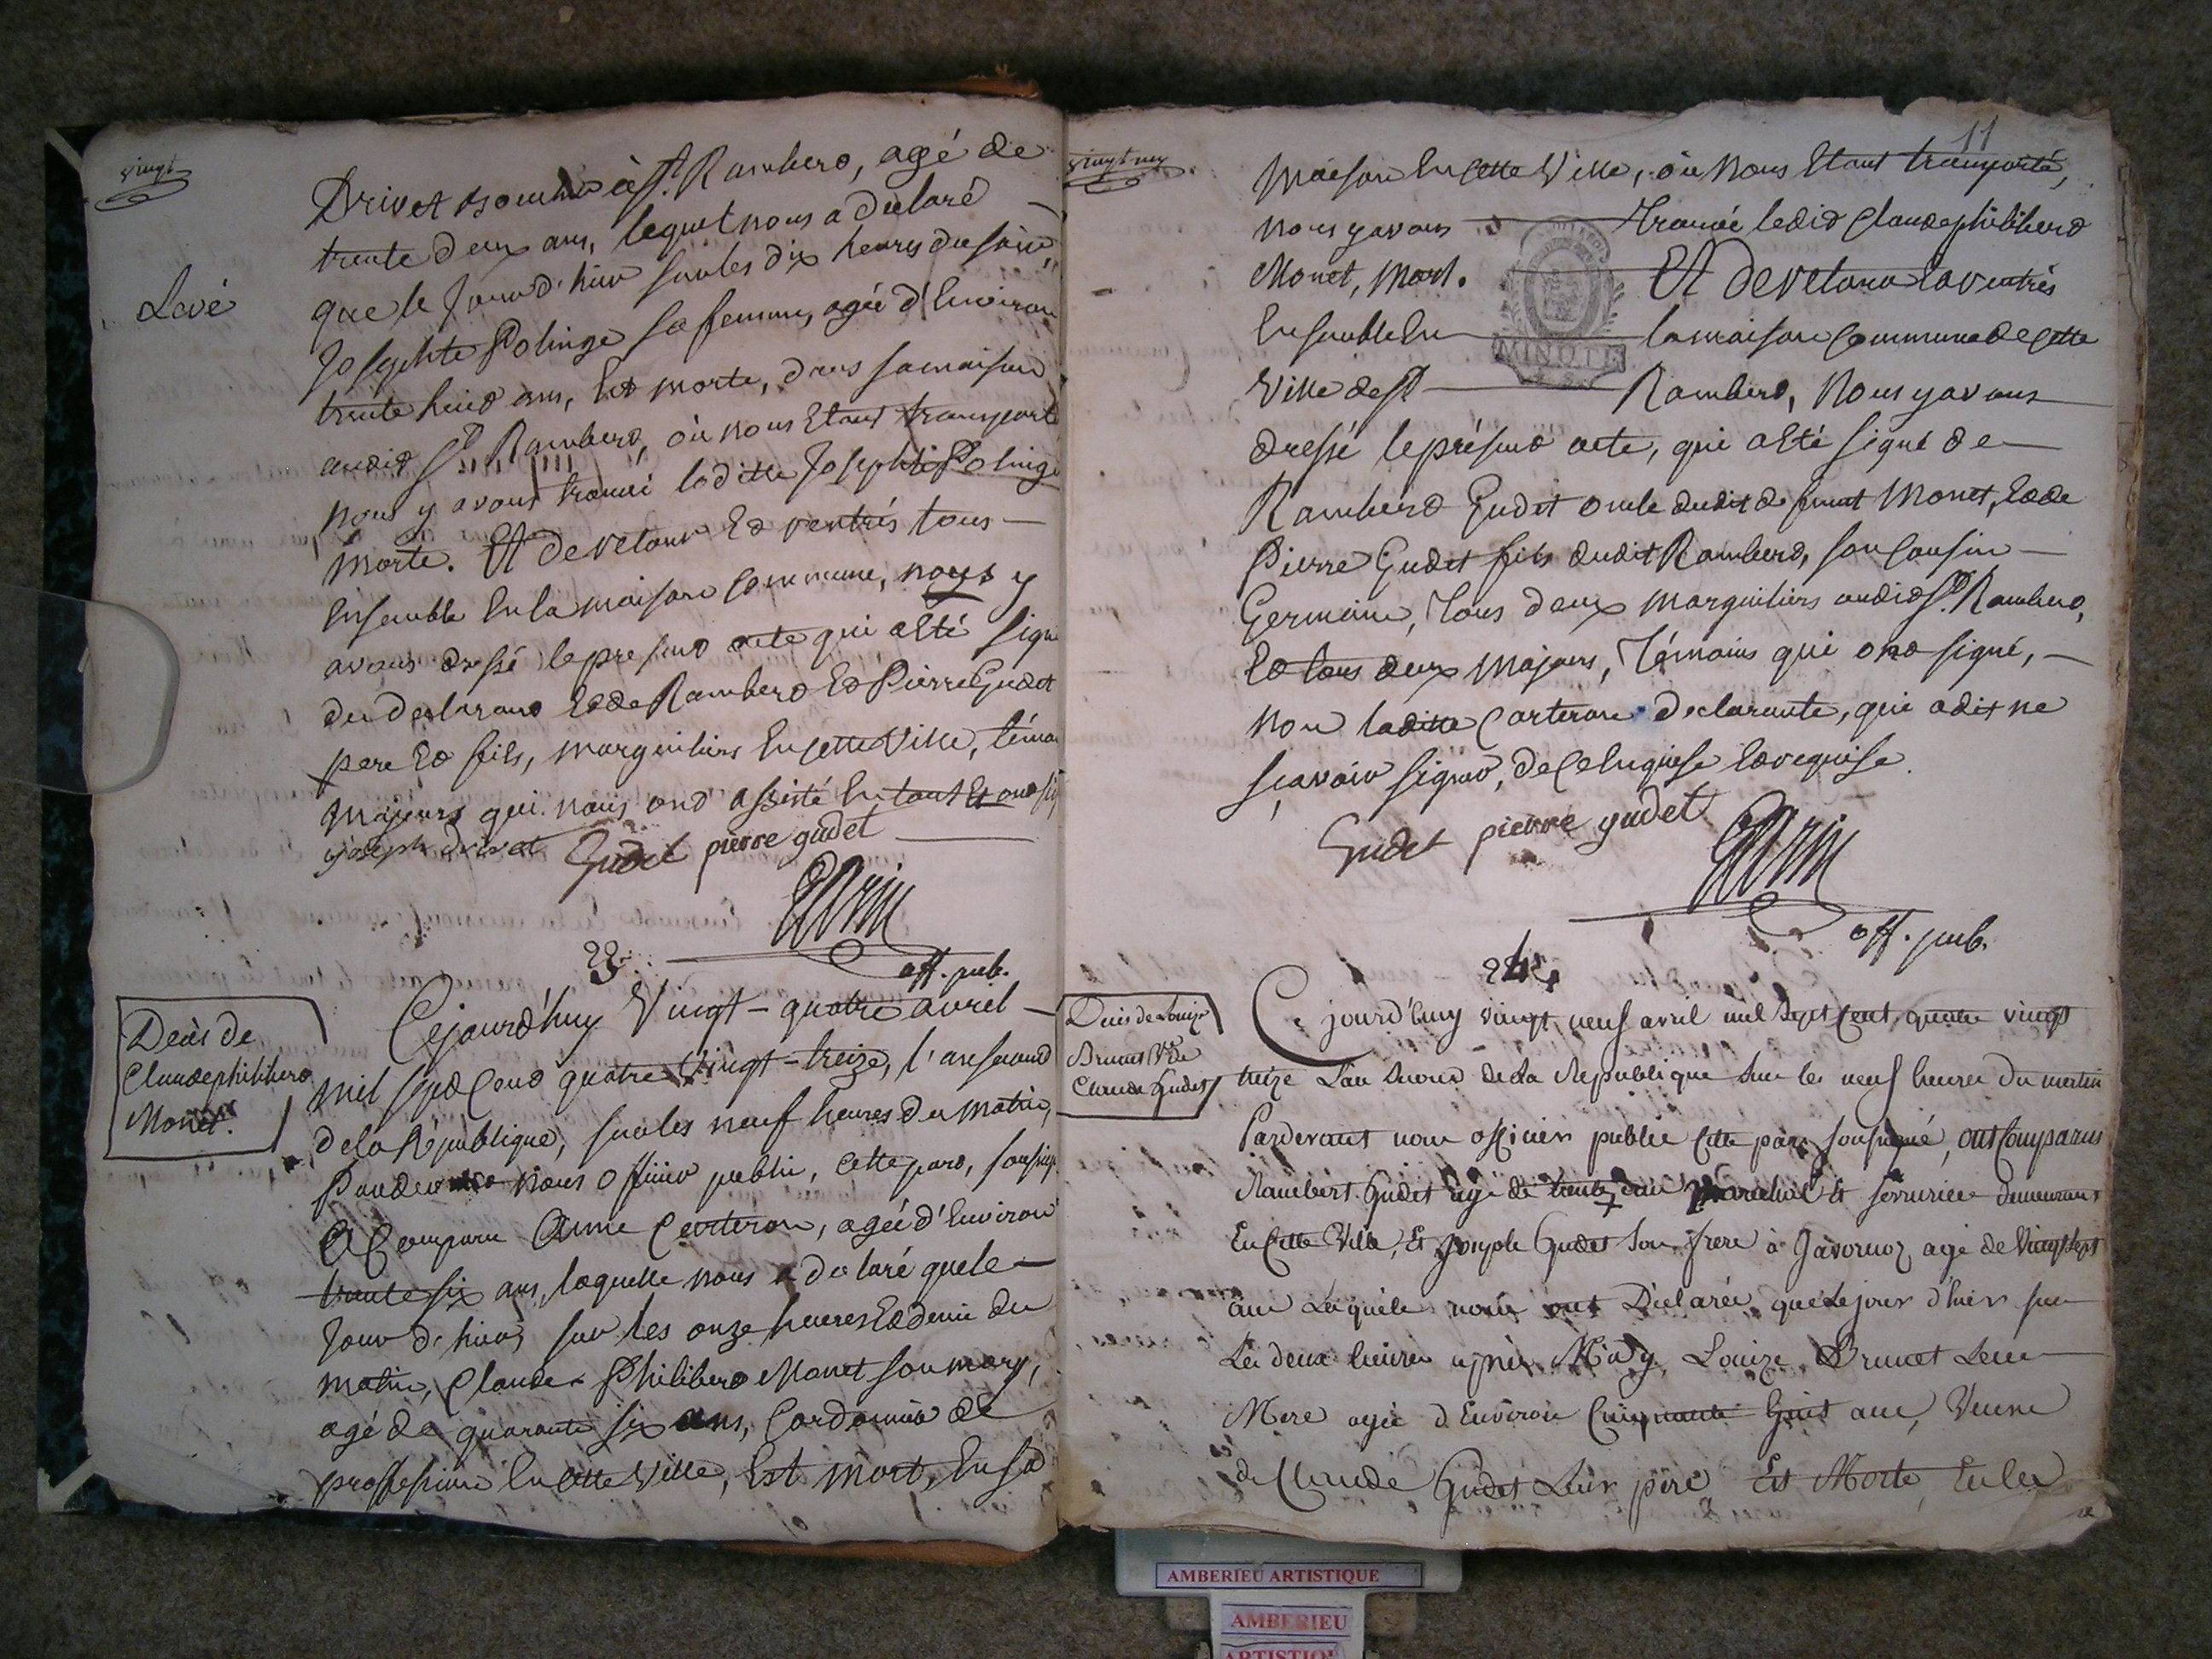 vingt
Levé
Drivet à St. Ramberd, agé de
trente deux ans, lequel nous a declaré
que le jour d'hier sur les dix heures du soir,
Josephte Polinge sa femme, agée d'Environ
trente huid ans, Est morte, dans sa maison
audit St. Ramberd, où nous Etant transporté
nous y avons trouvé laditte Josephte Polinge
morte. Et de retour Ed rentrés tous
Ensemble En la maison Commune, nous y
avons dressé le presend acte qui a Eté signé
du declarand Ed de Ramberd Ed Pierre Gudet
pere Ed fils, marguilliers En cette Ville, témoins
majeurs qui nous ond assisté En tout Et ond
joseph drivet Gudet pierre gudet
off. pub.
23.
Decès de
Claude philiberd
Monet.
Cejourd'huy Vingt-quatre avril
mil sept Cend quatre Vingt-treize, l'an second
de la République, sur les neuf heures du matin,
Pardevant nous officier public, cette pard, soussigné
A Comparu Anne Carteron, agée d'Environ
trente six ans, laquelle nous a declaré que le
Jour d'hier, sur les onze heures Ed demie du
matin, Claude Philiberd Monet son mary,
agé de quarante six ans, Cordonnier de
proffession En cette Ville, Est mort, En sa
vingt un
11
maison En cette Ville, où nous Etant transporté,
nous y avons trouvé ledid Claude philiberd
Monet, mort. Et de retour Ed rentrés
Ensemble En la maison Commune de cette
Ville de St Ramberd, nous y avons
dressé le présend acte, qui a Eté signé de
Ramberd Gudet oncle dudit defunt Monet, Ed de
Pierre Gudet fils dudit Ramberd, son Cousin
Germain, Tous deux marguilliers audid St. Ramberd,
Ed tous deux majeurs, Témoins qui ond signé,
non laditte Carteron declarante, qui a dit ne
sçavoir signer, de ce Enquise Ed requise.
MINUTE
Gudet pierre gudet
off. pub.
24.
Decis de Louize
Brunet Ve de
Claude Gudet
Ce jourd'huy vingt neuf avril mil Sept Cent quatre vingt
treize L'an Second de La Republique Sur les neuf heures du matin
Pardevant nous officier public Cette part soussigné, ont Comparus
Rambert Gudet agé de trente Marechal et serrurier demeurant
En Cette Ville, Et Joseph Gudet Son frere à Javornoz agé de Vingt Sept
ans Lequels nous ont Déclarée que Le jour d'hier sur
Les deux heures apres Midy, Louize Brunet Leur
Mere agée d'Environ Cinquante huit ans, Veuve
de Claude Gudet Leur pere Est Morte, En Sa
AMBERIEU ARTISTIQUE
AMBERIEU
ARTISTIQUE